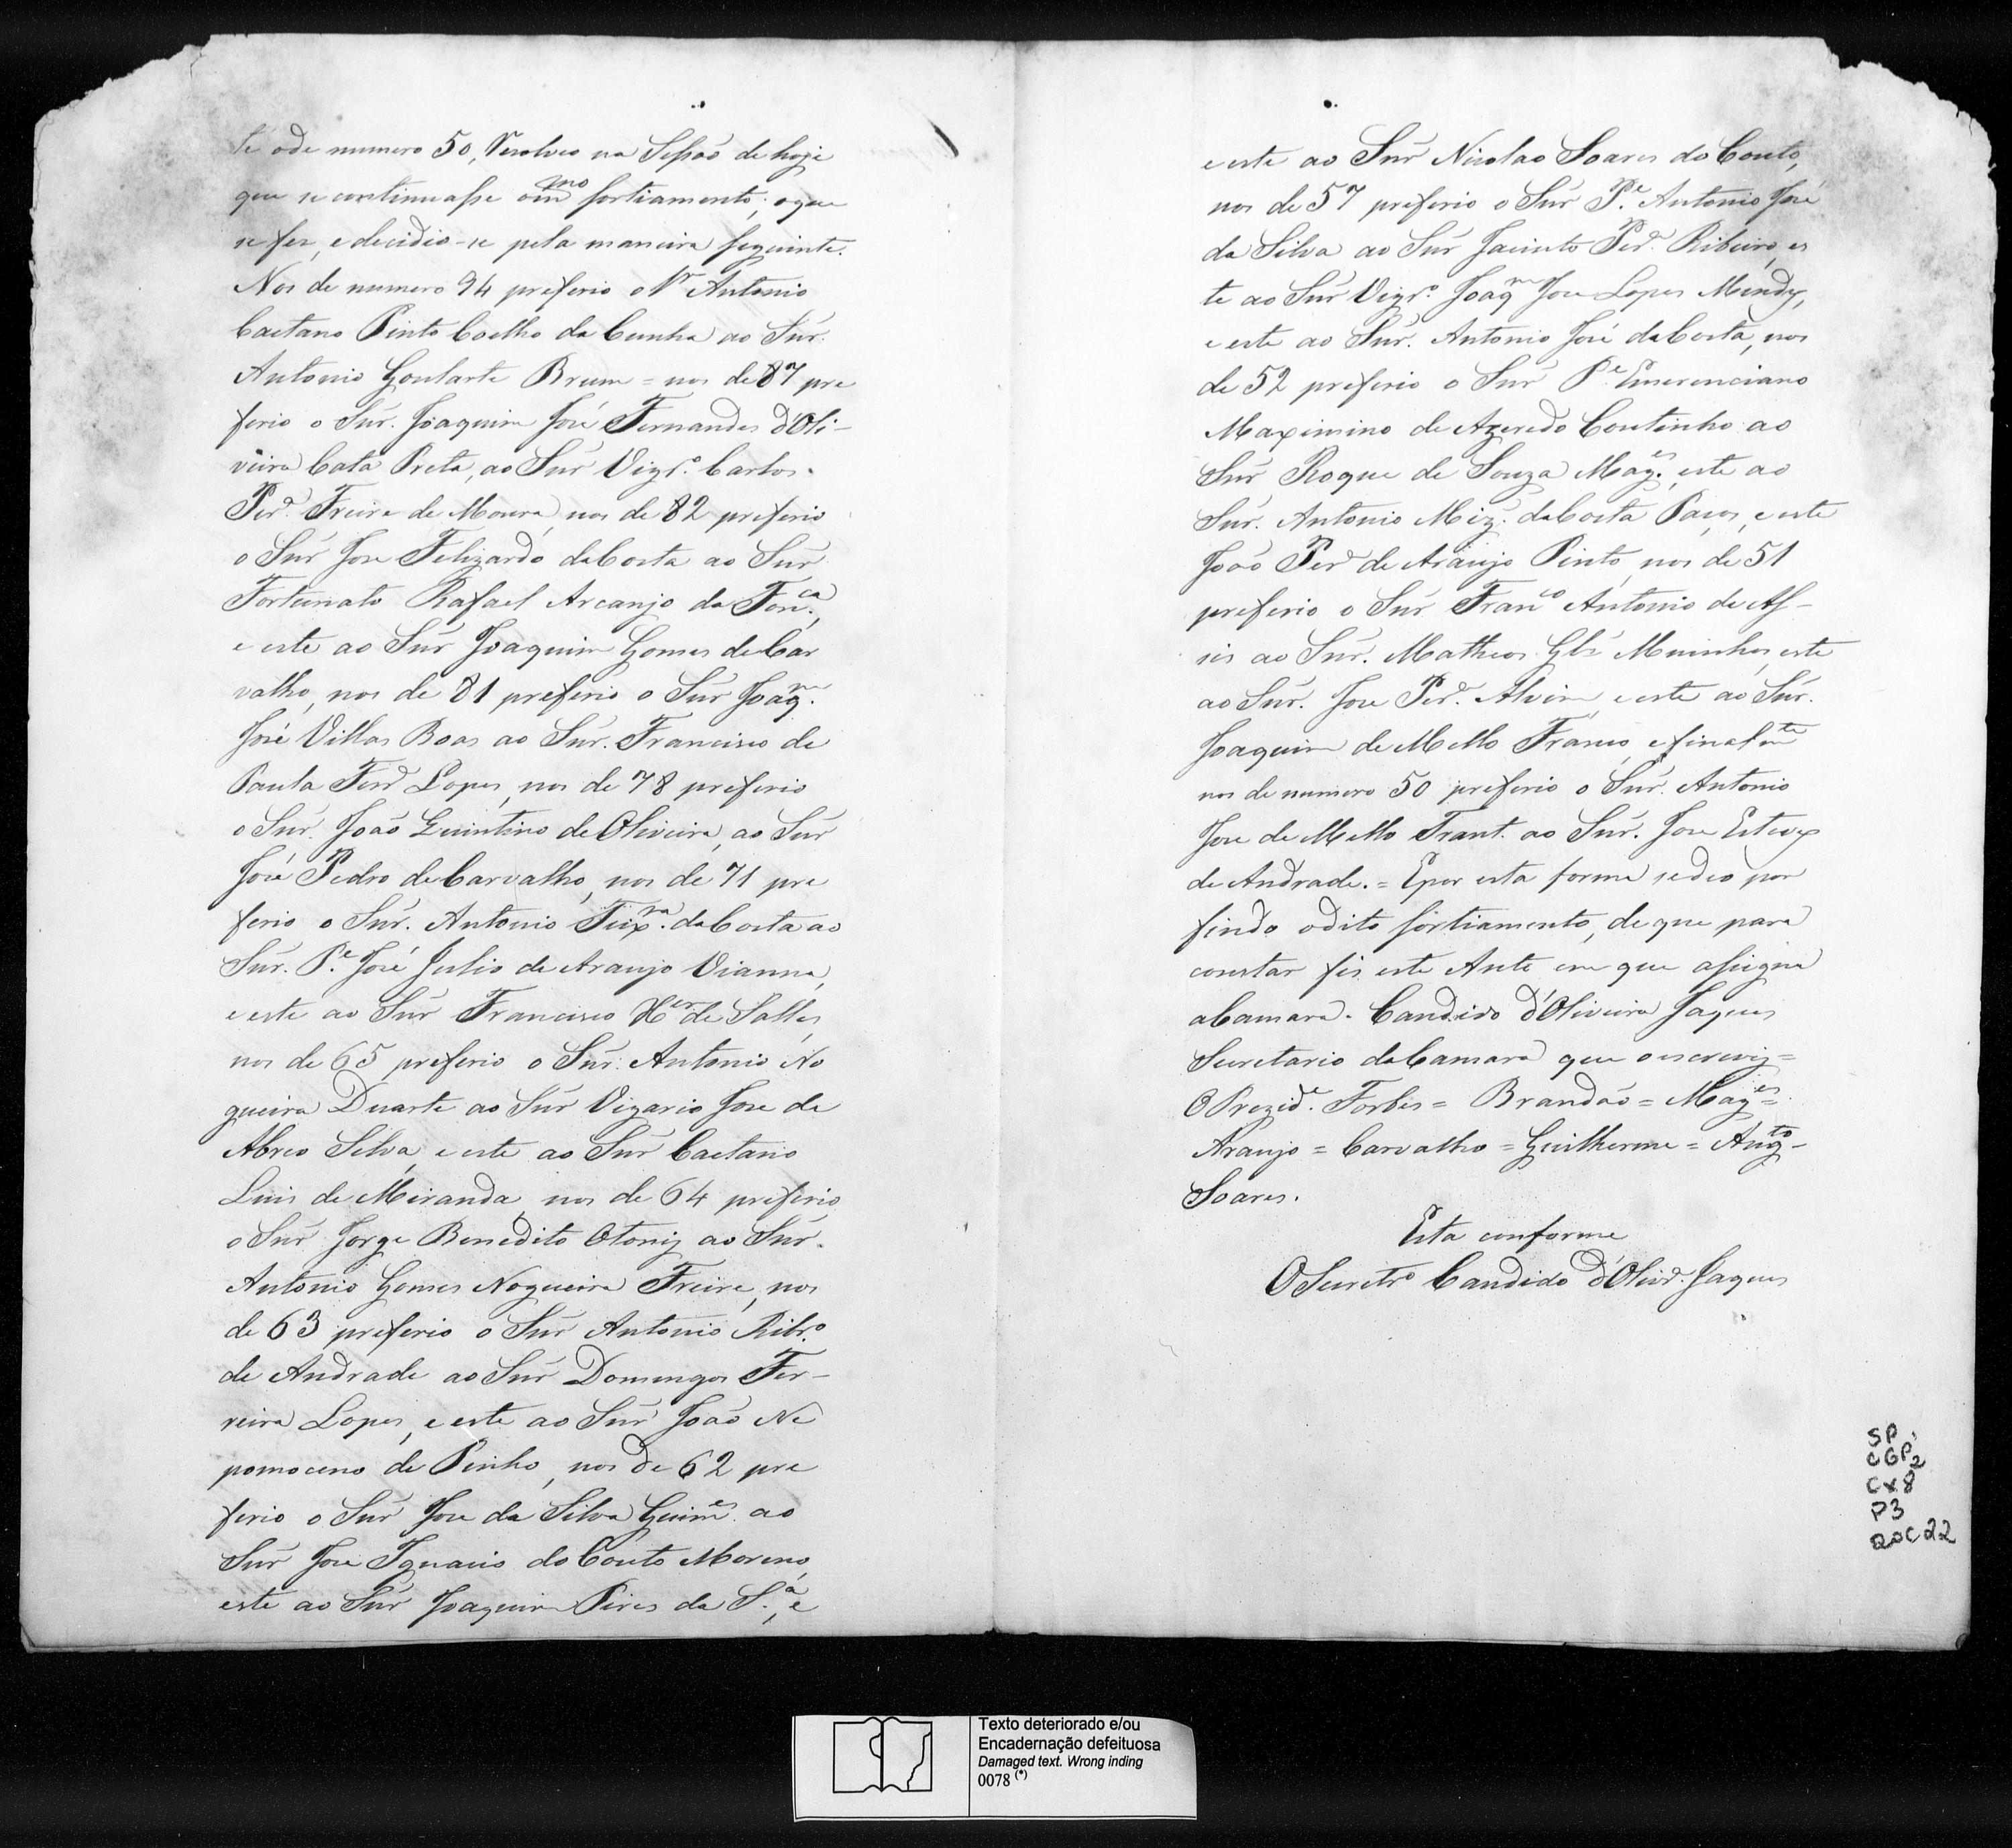 té o de numero 50, Resolveo na Sessaõ de hoje
que se continuasse o mmo sortiamento; o que
se fez, e decidio-se pela maneira seguinte.
Nos de numero 94 preferio o Sr Antonio
Caetano Pinto Coelho da Cunha ao Snr.
Antonio Goularte Brum = nos de 87 pre
ferio o Snr. Joaquim José Fernandes d'Oli-
veira Cata Preta, ao Snr Vigr.o Carlos
Per.a Freire de Moura, nos de 82 preferio
o Snr Jose Felizardo da Costa ao Snr
Fortunato Rafael Arcanjo da Fon.ca,
e este ao Snr Joaquim Gomes de Car
valho, nos de 81 preferio o Snr Joaq.m
José Villas Boas ao Snr. Francisco de
Paula Ferr.a Lopes, nos de 78 preferio
o Snr. Joaõ Quintino de Oliveira, ao Snr
José Pedro de Carvalho, nos de 71 pre
ferio o Snr. Antonio Teix.ra da Costa ao
Snr. P.e José Julio de Araujo Vianna,
e este ao Snr Francisco X.er de Salles,
nos de 65 preferio o Snr. Antonio No
gueira Duarte ao Snr Vigario Jose de
Abreo Silva, e este ao Snr Caetano
Luis de Miranda, nos de 64 preferio
o Snr Jorge Benedito Otoniz ao Snr.
Antonio Gomes Nogueira Freire, nos
de 63 preferio o Snr Antonio Ribr.o
de Andrade ao Snr Domingos Fer-
reira Lopes, e este ao Snr Joaõ Ne
pomoceno de Pinho, nos de 62 pre
ferio o Snr Jose da Silva Guim.es ao
Snr Jose Ignacio do Couto Moreno,
este ao Snr Joaquim Pires da S.a, e
e este ao Snr Nicolao Soares do Couto,
nos de 57 preferio o Snr P.e Antonio José
da Silva ao Snr Jacinto Per.a Ribeiro, es
te ao Snr Vigr.o Joaq.m Jose Lopes Mendes,
e este ao Snr. Antonio José da Costa, nos
de 52 preferio o Snr P.e Emerenciano
Maximino de Azeredo Coutinho ao
Snr Roque de Souza Mag.es, este ao
Snr. Antonio Miz. da Costa Paços, e este
Joaõ Per.a de Araujo Pinto, nos de 51
preferio o Snr Fran.co Antonio de As-
sis ao Snr. Matheos Glz Muinhos, este
ao Snr. Jose Per.a Alvim, e este ao Snr.
Joaquim de Mello Franco, e finalm.te
nos de numero 50 preferio o Snr. Antonio
Jose de Mello Trant. ao Snr. Jose Esteves
de Andrade. = E por esta forma se deo por
findo o dito sortiamento, de que para
constar fis este Auto em que assigna
a Camara. Candido d'Oliveira Jaques
Secretario da Camara que o escreviz=
O Prezid.e Forbes = Brandaõ = Mag.es =
Araujo = Carvalho = Guilherme = Aug.to -
Soares.
Esta conforme
O Secretr.o Candido d'Oliv.a Jaques
SP
CGP2
Cx8
P3
DOC 22
Texto deteriorado e/ou
Encadernação defeituosa
Damaged text. Wrong inding
0078 (*)